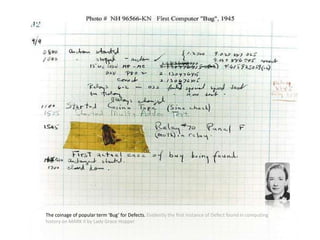 Photo # NH 96566-KN First Computer "Bug", 1945
92
9/9
0800 Antan started
1000 " stopped - antan ✓
13" MP - MC
033 PRO 2 2.130476415
const 2.130676415
Relays 6-2 in 033 failed special speed test
in relay
Relays changed
1100 Started Cosine Tape (Sine check)
1525 Started Multi Adder Test.
1545 Relay #70 Panel F
(moth) in relay.
First actual case of bug being found.
antangent started.
1700 closed down.
The coinage of popular term 'Bug' for Defects. Evidently the first instance of Defect found in computing
history on MARK II by Lady Grace Hopper